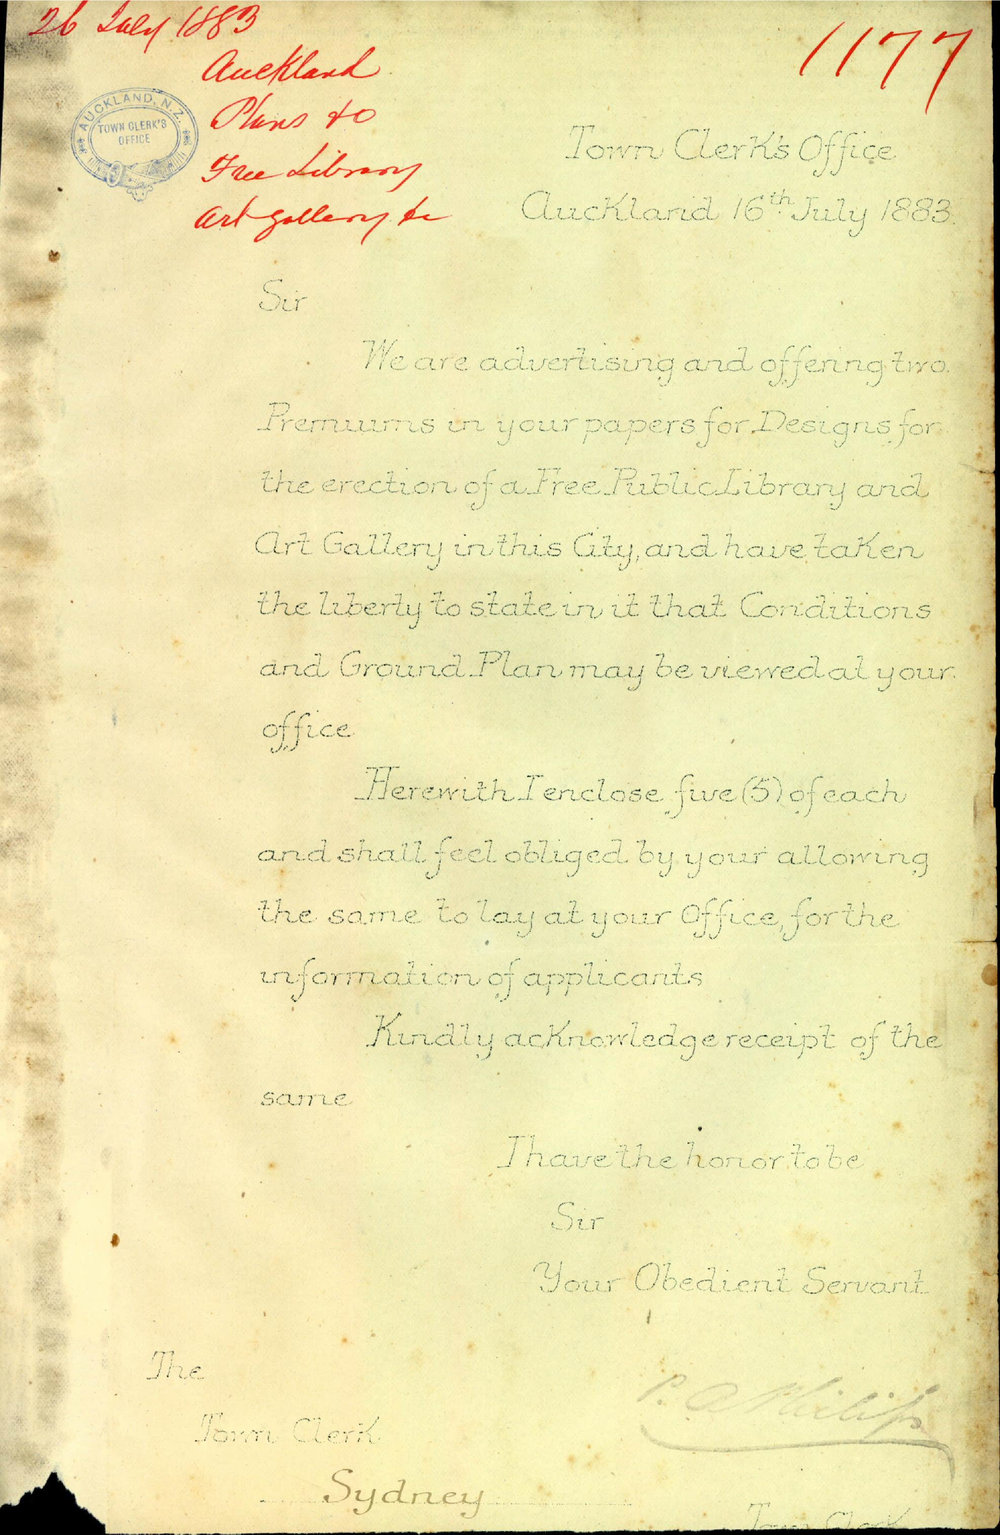 26 July 1883
1177
Auckland
Plans to
Free Library
Art gallery &c
AUCKLAND, N.Z.
TOWN CLERK'S
OFFICE
Town Clerk's Office
Auckland 16th July 1883.
Sir
We are advertising and offering two
Premiums in your papers for Designs for
the erection of a Free Public Library and
Art Gallery in this City, and have taken
the liberty to state in it that Conditions
and Ground Plan may be viewed at your
office
Herewith I enclose five (5) of each
and shall feel obliged by your allowing
the same to lay at your Office, for the
information of applicants
Kindly acknowledge receipt of the
same
I have the honor to be
Sir
Your Obedient Servant
P. A. Philips
The
Town Clerk
Sydney
Town Clerk